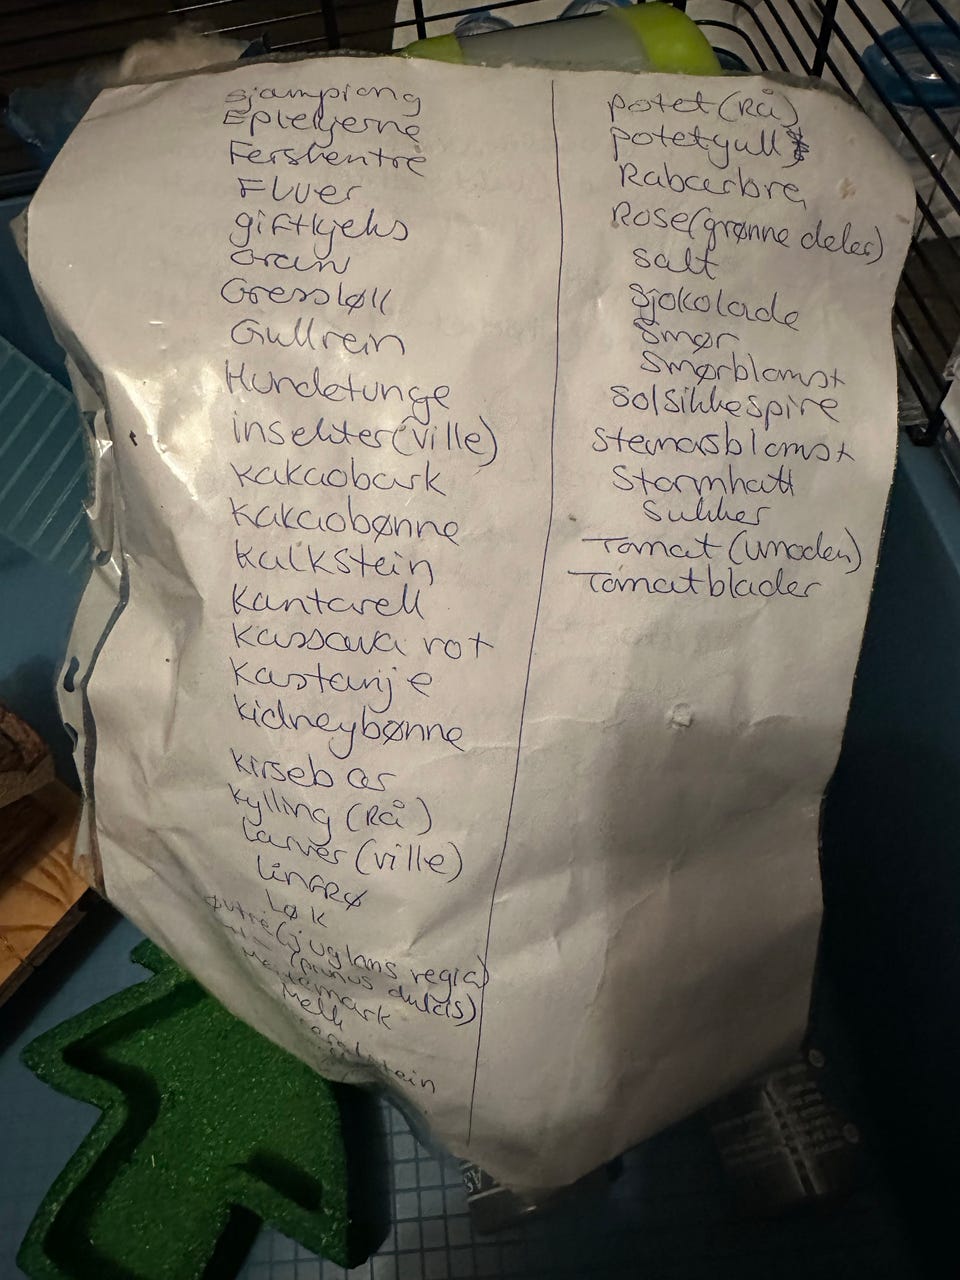 sjampiong
Eplekjerne
Ferskentre
Fluer
giftkjeks
Gran
Gressløk
Gullrein
Hundetunge
insekter (ville)
kakaobark
kakaobønne
kalkstein
kantarell
kassava rot
kastanje
kidneybønne
kirsebær
kylling (Rå)
Larver (ville)
LinFRø
Løk
(juglans regia)
(prunus dulcis)
Melk
potet (Rå)
potetgull
Rabarbra
Rose (grønne deler)
salt
sjokolade
smør
smørblomst
solsikkespire
Stormhatt
Sukker
Tomat (umoden)
Tomatblader